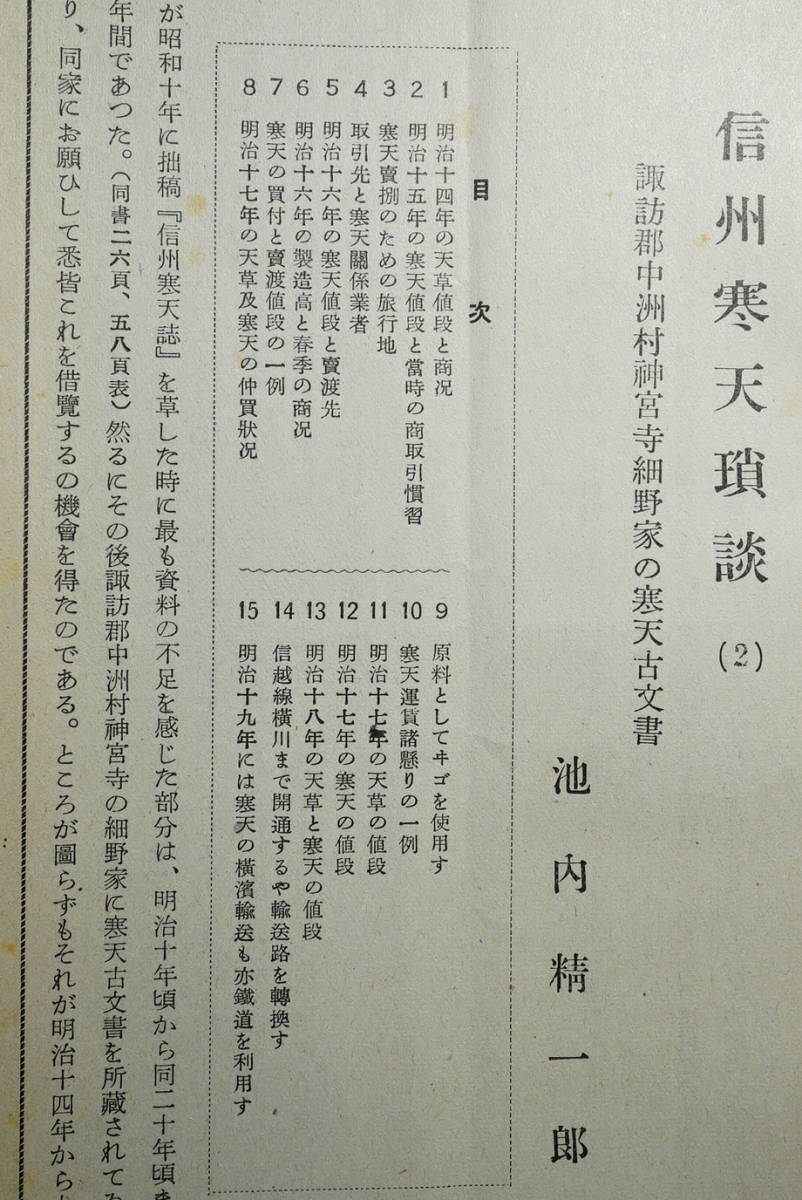 信州寒天瑣談(2)
諏訪郡中洲村神宮寺細野家の寒天古文書
池内精一郎
目次
1 明治十四年の天草値段と商況
2 明治十五年の寒天値段と當時の商取引慣習
3 寒天賣捌のための旅行地
4 取引先と寒天關係業者
5 明治十六年の寒天値段と賣渡先
6 明治十六年の製造高と春季の商况
7 寒天の買付と賣渡値段の一例
8 明治十七年の天草及寒天の仲買狀况
9 原料としてヰゴを使用す
10 寒天運賃諸懸りの一例
11 明治十七年の天草の値段
12 明治十七年の寒天の値段
13 明治十八年の天草と寒天の値段
14 信越線横川まで開通するや輸送路を轉換す
15 明治十九年には寒天の橫濱輸送も亦鐵道を利用す
が昭和十年に拙稿『信州寒天誌』を草した時に最も資料の不足を感じた部分は、明治十年頃から同二十年頃ま
年間であつた。(同書二六頁、五八頁表)然るにその後諏訪郡中洲村神宮寺の細野家に寒天古文書を所藏されてゐ
り、同家にお願ひして悉皆これを借覽するの機會を得たのである。ところが圖らずもそれが明治十四年から